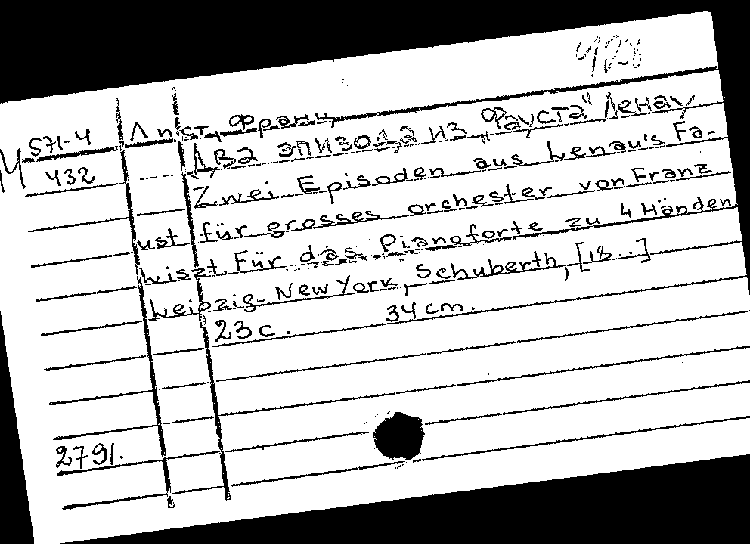 428
М 571-4 Лист, Франц
432 Два эпизода из „Фауста" Ленау
Zwei Episoden aus Lenau's Fa-
ust für grosses orchester von Franz
Liszt. Für das Pianoforte zu 4 Händen
Leipzig-New York, Schuberth, [18..]
23 c. 34 cm.
2791.